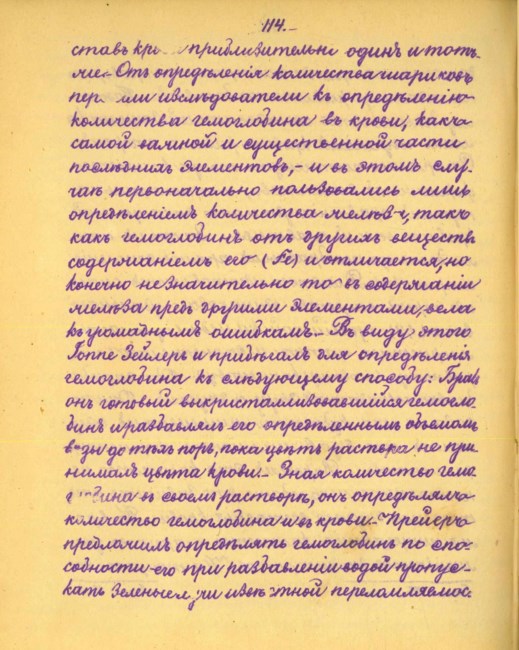 114.-
ставъ кро приблизительно одинъ и тотъ-
же.- Отъ опредѣленія количества шариковъ
пере ли изслѣдователи къ опредѣленію
количества гемоглобина въ крови, какъ
самой важной и существенной части
послѣднихъ элементовъ,- и въ этомъ слу-
чаѣ первоначально пользовались лишь
опредѣленіемъ количества желѣза, такъ
какъ гемоглобинъ отъ другихъ веществъ
содержаніемъ его (Fe) и отличается, но
конечно незначительно то въ содержаніи
желѣза предъ другими элементами, вела
къ громаднымъ ошибкамъ.- Въ виду этого
Гоппе Зейлеръ и прибѣгалъ для опредѣленія
гемоглобина къ слѣдующему способу: Бралъ
онъ готовый выкристаллизовавшійся гемогло-
бинъ и разбавлялъ его опредѣленнымъ объемомъ
воды до тѣхъ поръ, пока цвѣтъ раствора не при-
нималъ цвѣта крови.- Зная количество гемо-
глобина въ своемъ растворѣ, онъ опредѣлялъ
количество гемоглобина и въ крови.- Прейеръ
предложилъ опредѣлять гемоглобинъ по спо-
собности его при разбавленіи водой пропус-
кать зеленые лучи извѣстной переломляемос-